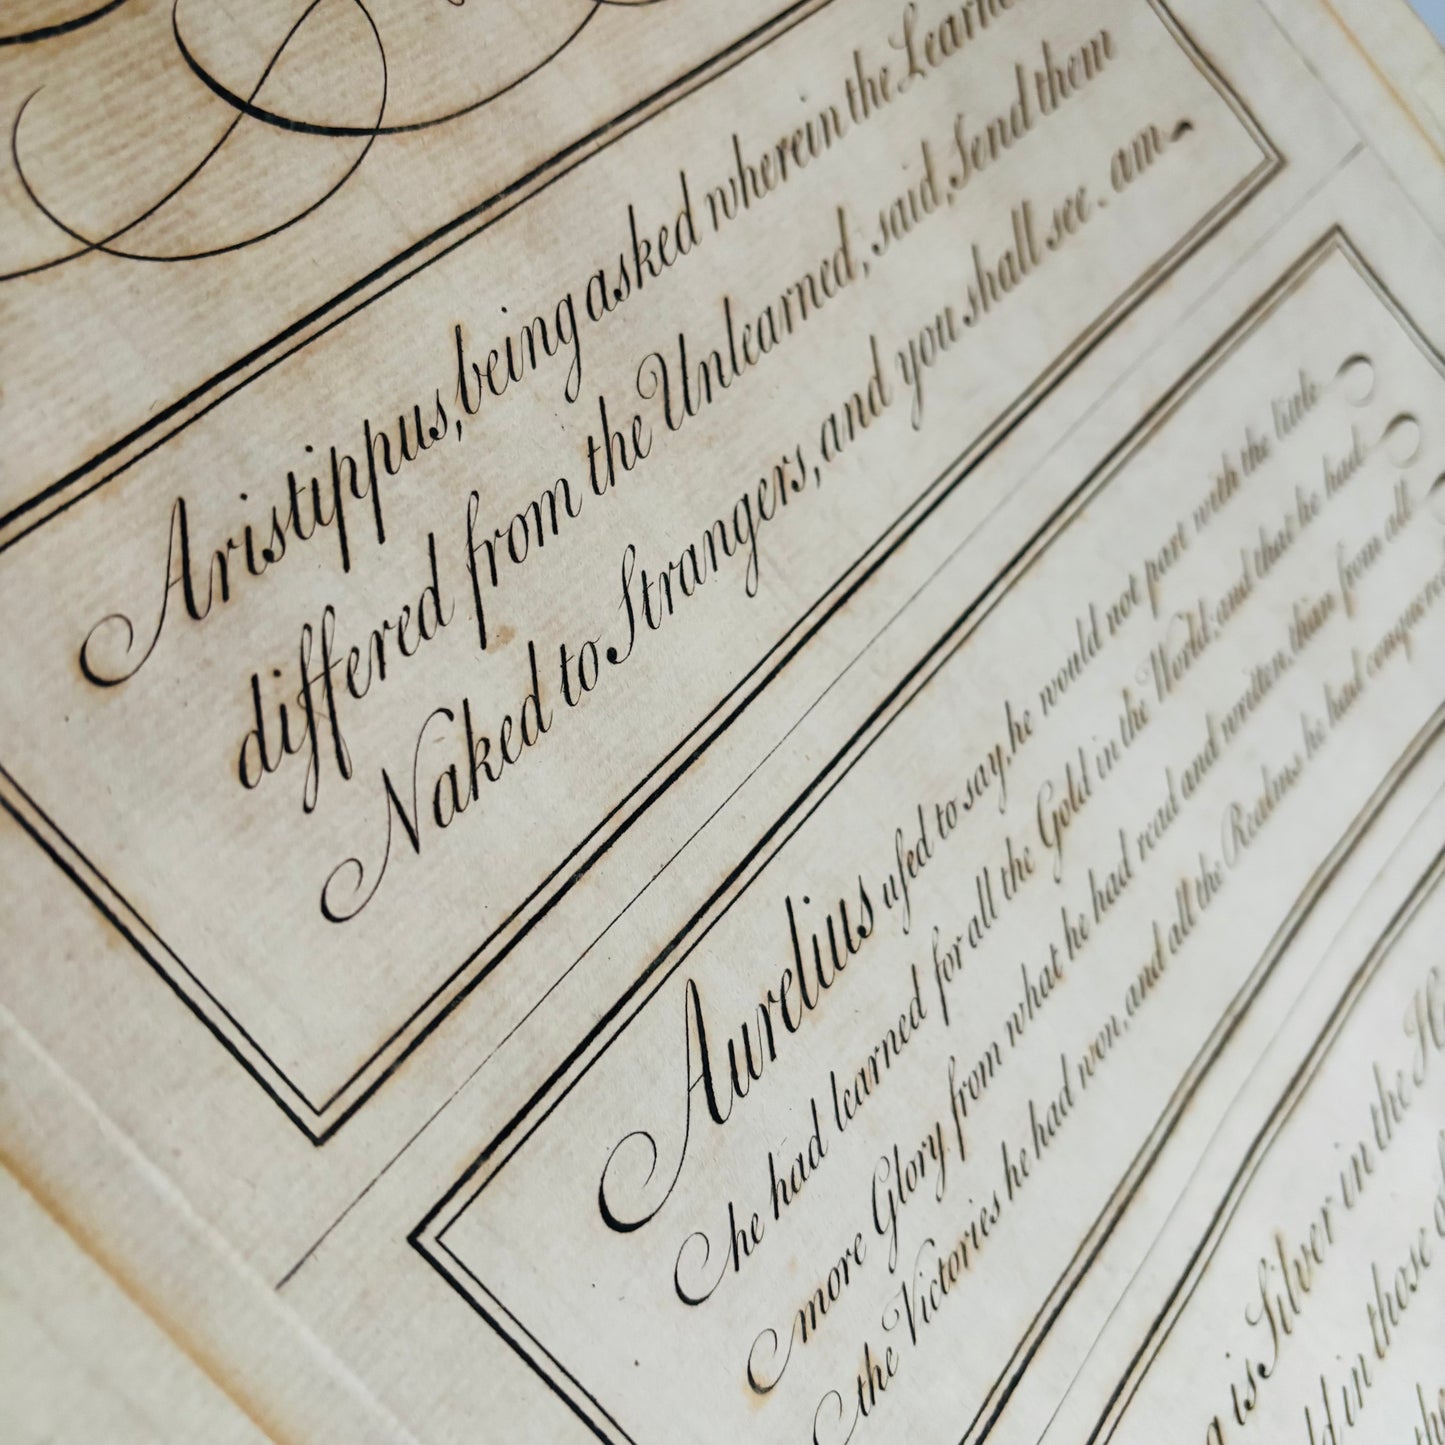 Aristippus, being asked wherein the Learne
differed from the Unlearned, said, Send them
Naked to Strangers, and you shall see. am
Aurelius uſed to say, he would not part with the little
he had learned for all the Gold in the World; and that he had
more Glory from what he had read and written, than from all
the Victories he had won, and all the Realms he had conquered
is Silver in the H
ld in those
the